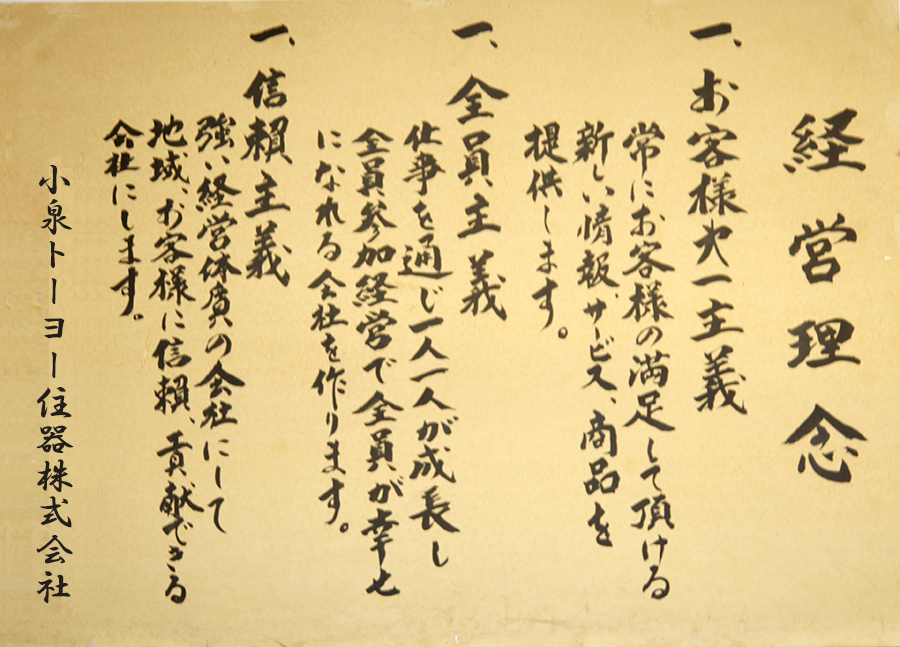 経営理念
一、お客様才一主義
常にお客様の満足して頂ける
新しい情報、サービス、商品を
提供します。
一、全員主義
仕事を通じ一人一人が成長し
全員参加経営で全員が幸せ
になれる会社を作ります。
一、信頼主義
強い経営体質の会社にして
地域、お客様に信頼、貢献できる
会社にします。
小泉トーヨー住器株式会社